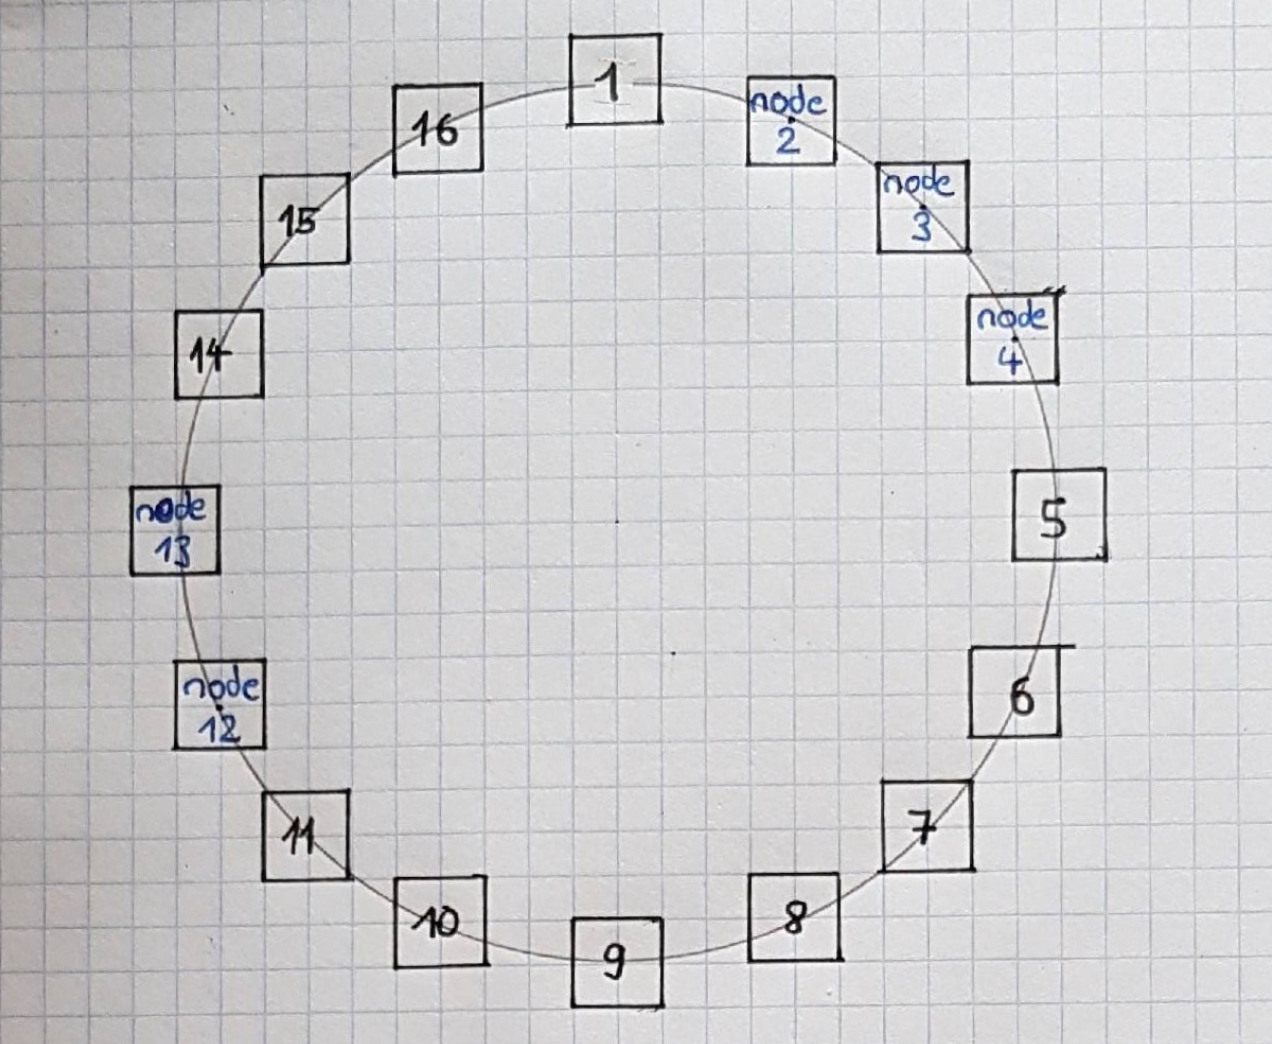 1
node
2
node
3
node
4
5
6
7
8
9
10
11
node
12
node
13
14
15
16